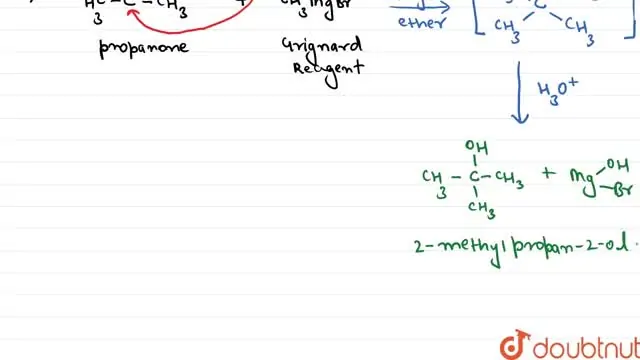 H₃C – C – CH₃ + CH₃MgBr
ether
CH₃ C CH₃
propanone
Grignard
Reagent
H₃O⁺
OH
CH₃ – C – CH₃ + Mg OH
Br
CH₃
2-methylpropan-2-ol
doubtnut